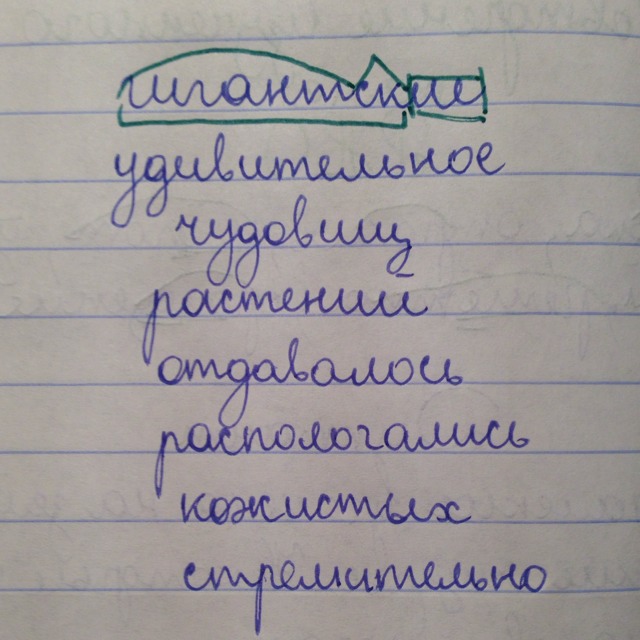 гигантские
удивительное
чудовищ
растений
отдавалось
распологались
кожистых
стремительно